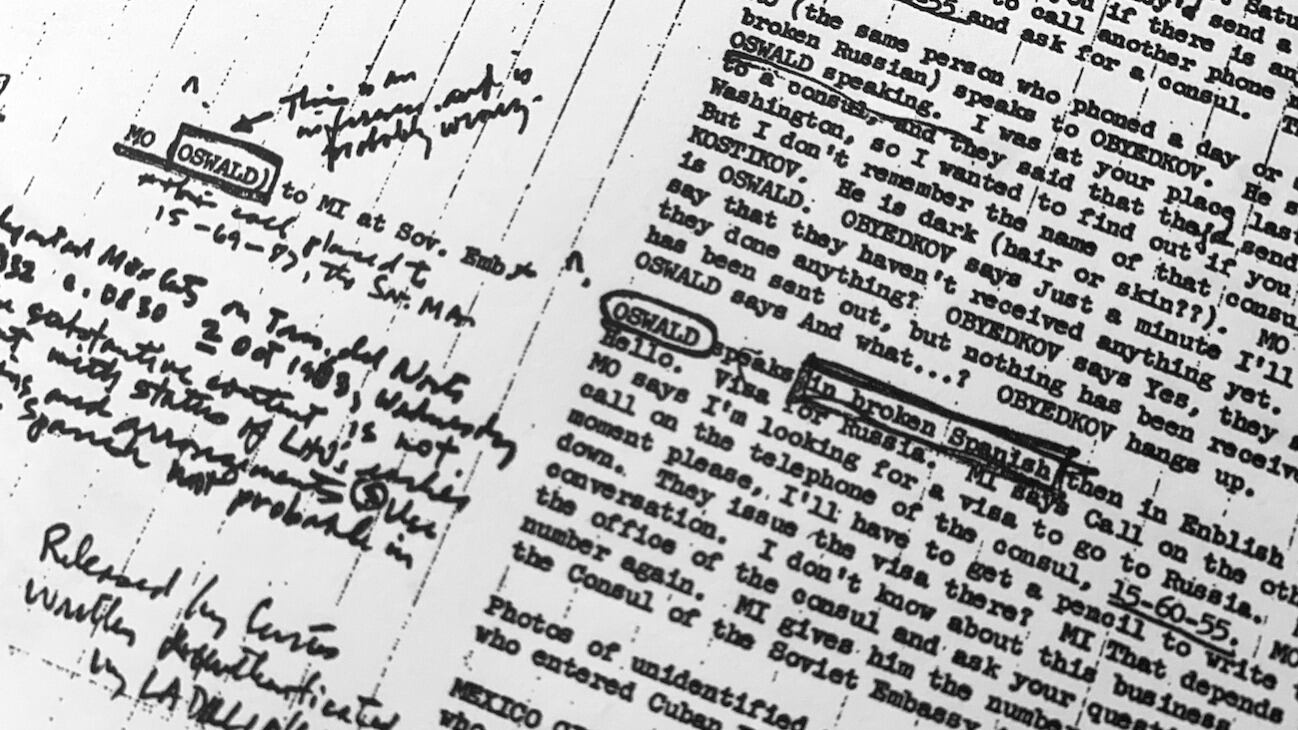 MO OSWALD) to MI at Sov. Emb
This is an
inference and is
probably wrong.
this call placed to
15-69-87, the Sov. MA
on
2 Oct 1963, Wednesday
substantive content is not
with status of
arrangements Use
Spanish not probable in
Released by
written
by
Satu
send a
if there is an
55 and ask for a consul. T
to call another phone
(the same person who phoned a day or
broken Russian) speaks to OBYEDKOV. He s
OSWALD speaking. I was at your place last
to a consul, and they said that they'd send
Washington, so I wanted to find out if you
But I don't remember the name of that consu
KOSTIKOV. He is dark (hair or skin??). MO
is OSWALD. OBYEDKOV says Just a minute I'll
say that they haven't received anything yet.
they done anything? OBYEDKOV says Yes, they s
has been sent out, but nothing has been receive
OSWALD says And what...? OBYEDKOV hangs up.
OSWALD speaks in broken Spanish then in Enblish
Hello. Visa for Russia. MI says Call on the oth
MO says I'm looking for a visa to go to Russia.
call on the telephone of the consul, 15-60-55. MO
moment please, I'll have to get a pencil to write t
down. They issue the visa there? MI That depends
conversation. I don't know about this business
the office of the consul and ask your questi
number again. MI gives him the number
the Consul of the Soviet Embassy
Photos of unidentified
who entered Cuban
MEXICO
who